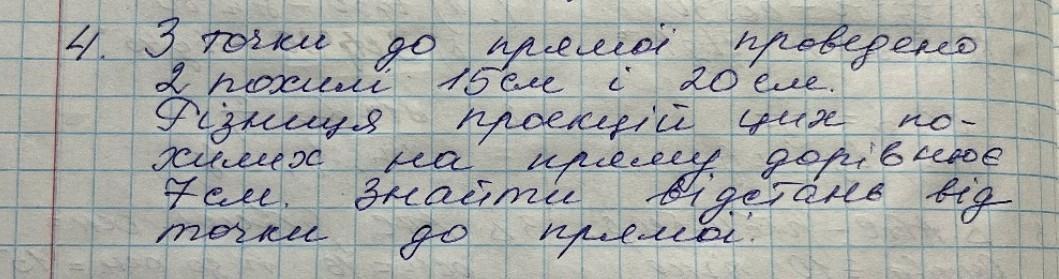 4. З точки до прямої проведено
2 похилі 15см і 20см.
Різниця проекцій цих по-
хилих на пряму дорівнює
7см. Знайти відстань від
точки до прямої.